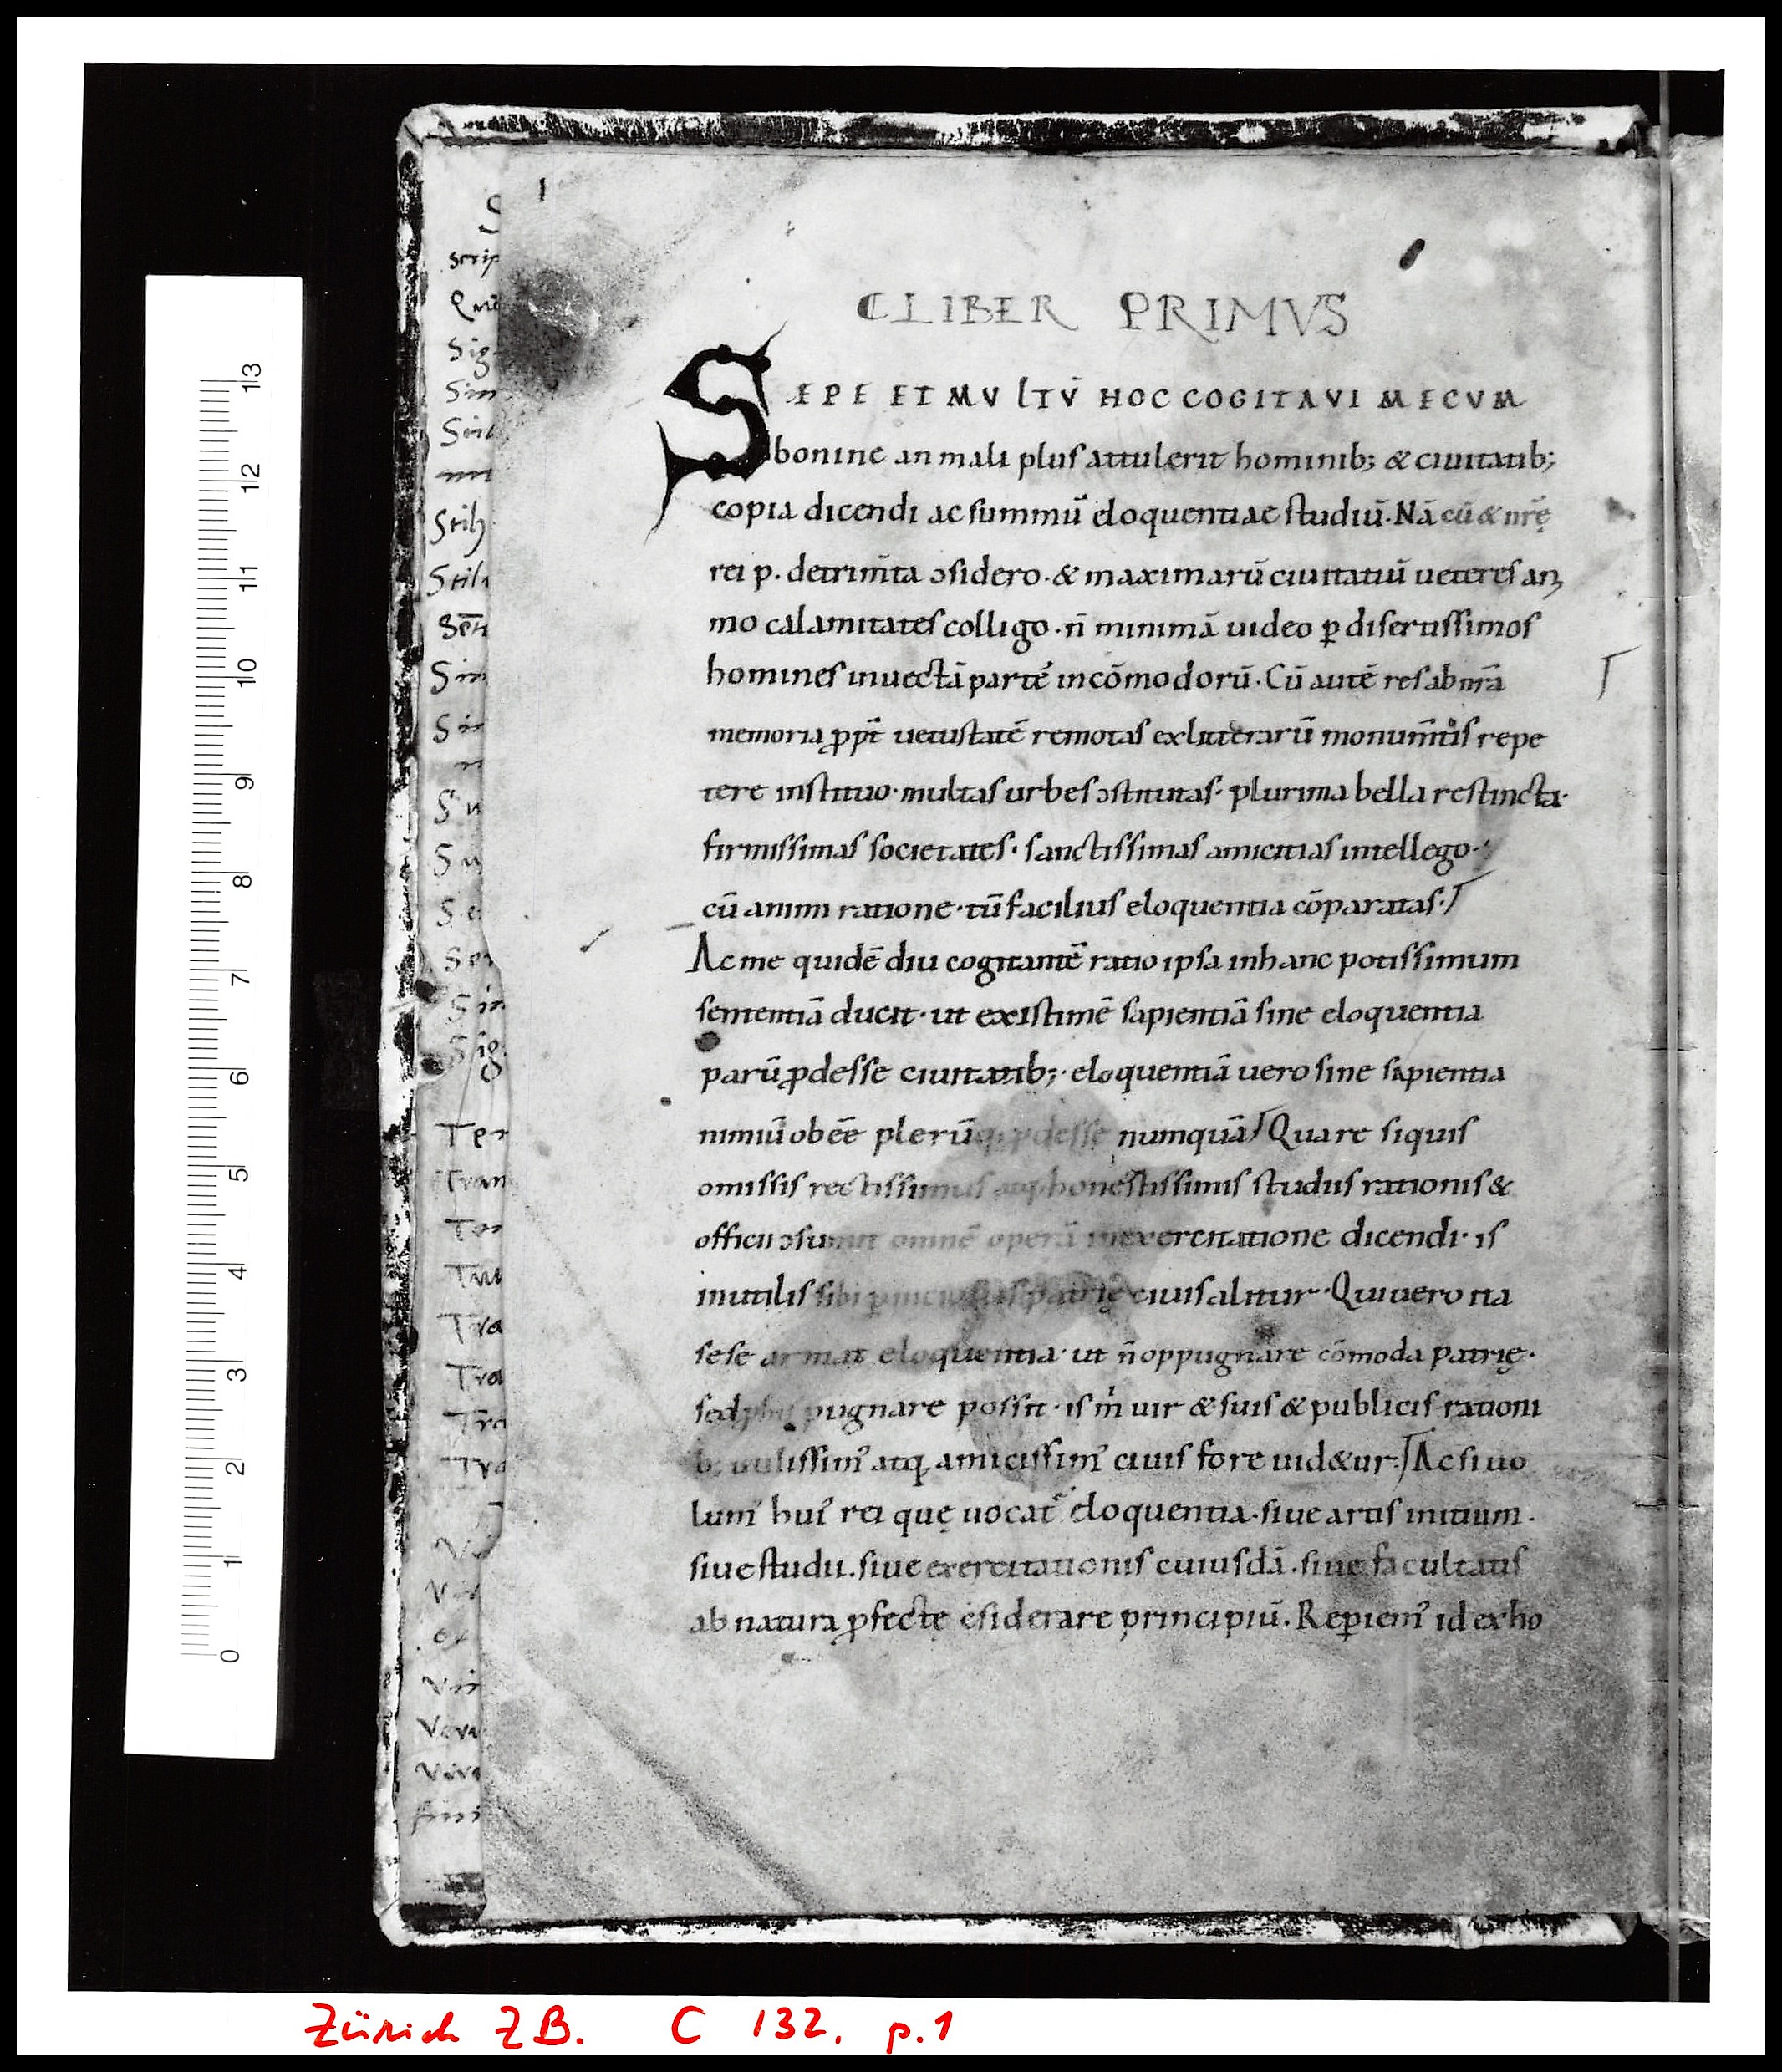 1
CLIBER PRIMVS
SEPE ET MVLTV̄ HOC COGITAVI MECVM
bonine an mali plus attulerit hominib; & ciuitatib;
copia dicendi ac summū eloquentiae studiū. Nā cū & nrę̄
rei p. detrim̄ta ɔsidero. & maximarū ciuitatiū ueteres an
mo calamitates colligo. n̄ minimā uideo ꝑ disertissimos
homines inuectā partē incōmodorū. Cū autē res ab nrā
memoria ꝓpt̄ uetustatē remotas ex litterarū monum̄tis repe
tere instituo. multas urbes ɔstitutas. plurima bella restincta.
firmissimas societates. sanctissimas amicitias intellego.
cū animi ratione. tū facilius eloquentia cōparatas.
Ac me quidē diu cogitantē ratio ipsa in hanc potissimum
sententiā ducit. ut existimē sapientiā sine eloquentia
parū ꝓdesse ciuitatib;. eloquentiā uero sine sapientia
nimiū obēē plerūq; ꝓdesse numquā Quare siquis
omissis rectissimis atq; honestissimis studiis rationis &
officii ɔsumit omnē operā in exercitatione dicendi. is
inutilis sibi patrię ciuis alitur. Qui uero ita
sese armat eloquentia. ut n̄ oppugnare cōmoda patrię.
sed pugnare possit. is m̄ uir & suis & publicis rationi
b; utilissim᾽ atq; amicissim᾽ ciuis fore uid&ur. Ac si uo
lum᾽ hui᾽ rei quę uocat᾽ eloquentia. siue artis initium.
siue studii. siue exercitationis cuiusdā. siue facultatis
ab natura ꝓfectę ɔsiderare principiū. Reꝑiem᾽ id ex ho
scrip
Sig
Sim
Stil
Sim
Ter
Tran
Tra
Tra
Tra
13
12
11
10
9
8
7
6
5
4
3
2
1
0
Zürich ZB. C 132, p.1